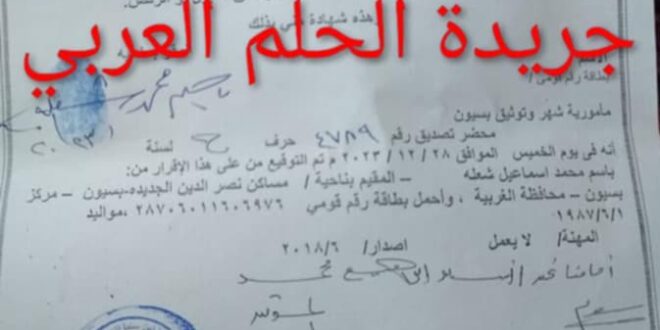 هذه شهادة مني بذلك
جريدة الحلم العربي
الاسم
بطاقة رقم قومي /
مأمورية شهر وتوثيق بسيون
محضر تصديق رقم ٤٧٨٩ حرف ح لسنة ٢٠٢٣
أنه فى يوم الخميس الموافق ٢٨ / ١٢ / ٢٠٢٣ م تم التوقيع من على هذا الإقرار من:
باسم محمد اسماعيل شعله – المقيم بناحية / مساكن نصر الدين الجديده-بسيون – مركز
بسيون – محافظة الغربية ، وأحمل بطاقة رقم قومي ٢٨٧٠٦٠١١٦٠٦٩٧٦ ،مواليد
١٩٨٧/٦/١
المهنة/ لا يعمل اصدار/ ٢٠١٨/٦
أمامنا نحن / السيد محمد